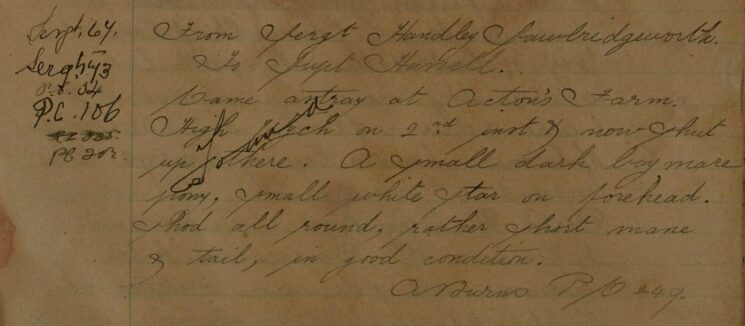 Sergt. 64.
Sergt 43
P.C. 34
P.C. 106
PC 335
PC 202
From Sergt Handley Sawbridgeworth.
To Supt Hassell.
Came astray at Acton's Farm.
High Wych on 2nd inst & now shut
up there. A small dark bay mare
pony, small white star on forehead.
Shod all round, rather short mane
& tail, in good condition.
A Burns P/C 249.